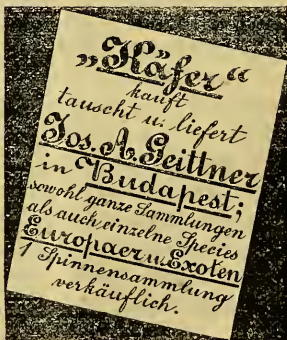 „Käfer“
kauft
tauscht u: liefert
Jos. A. Geittner
in Budapest;
sowohl ganze Sammlungen
als auch einzelne Species
Europaer u. Exoten
1 Spinnensammlung
verkäuflich.